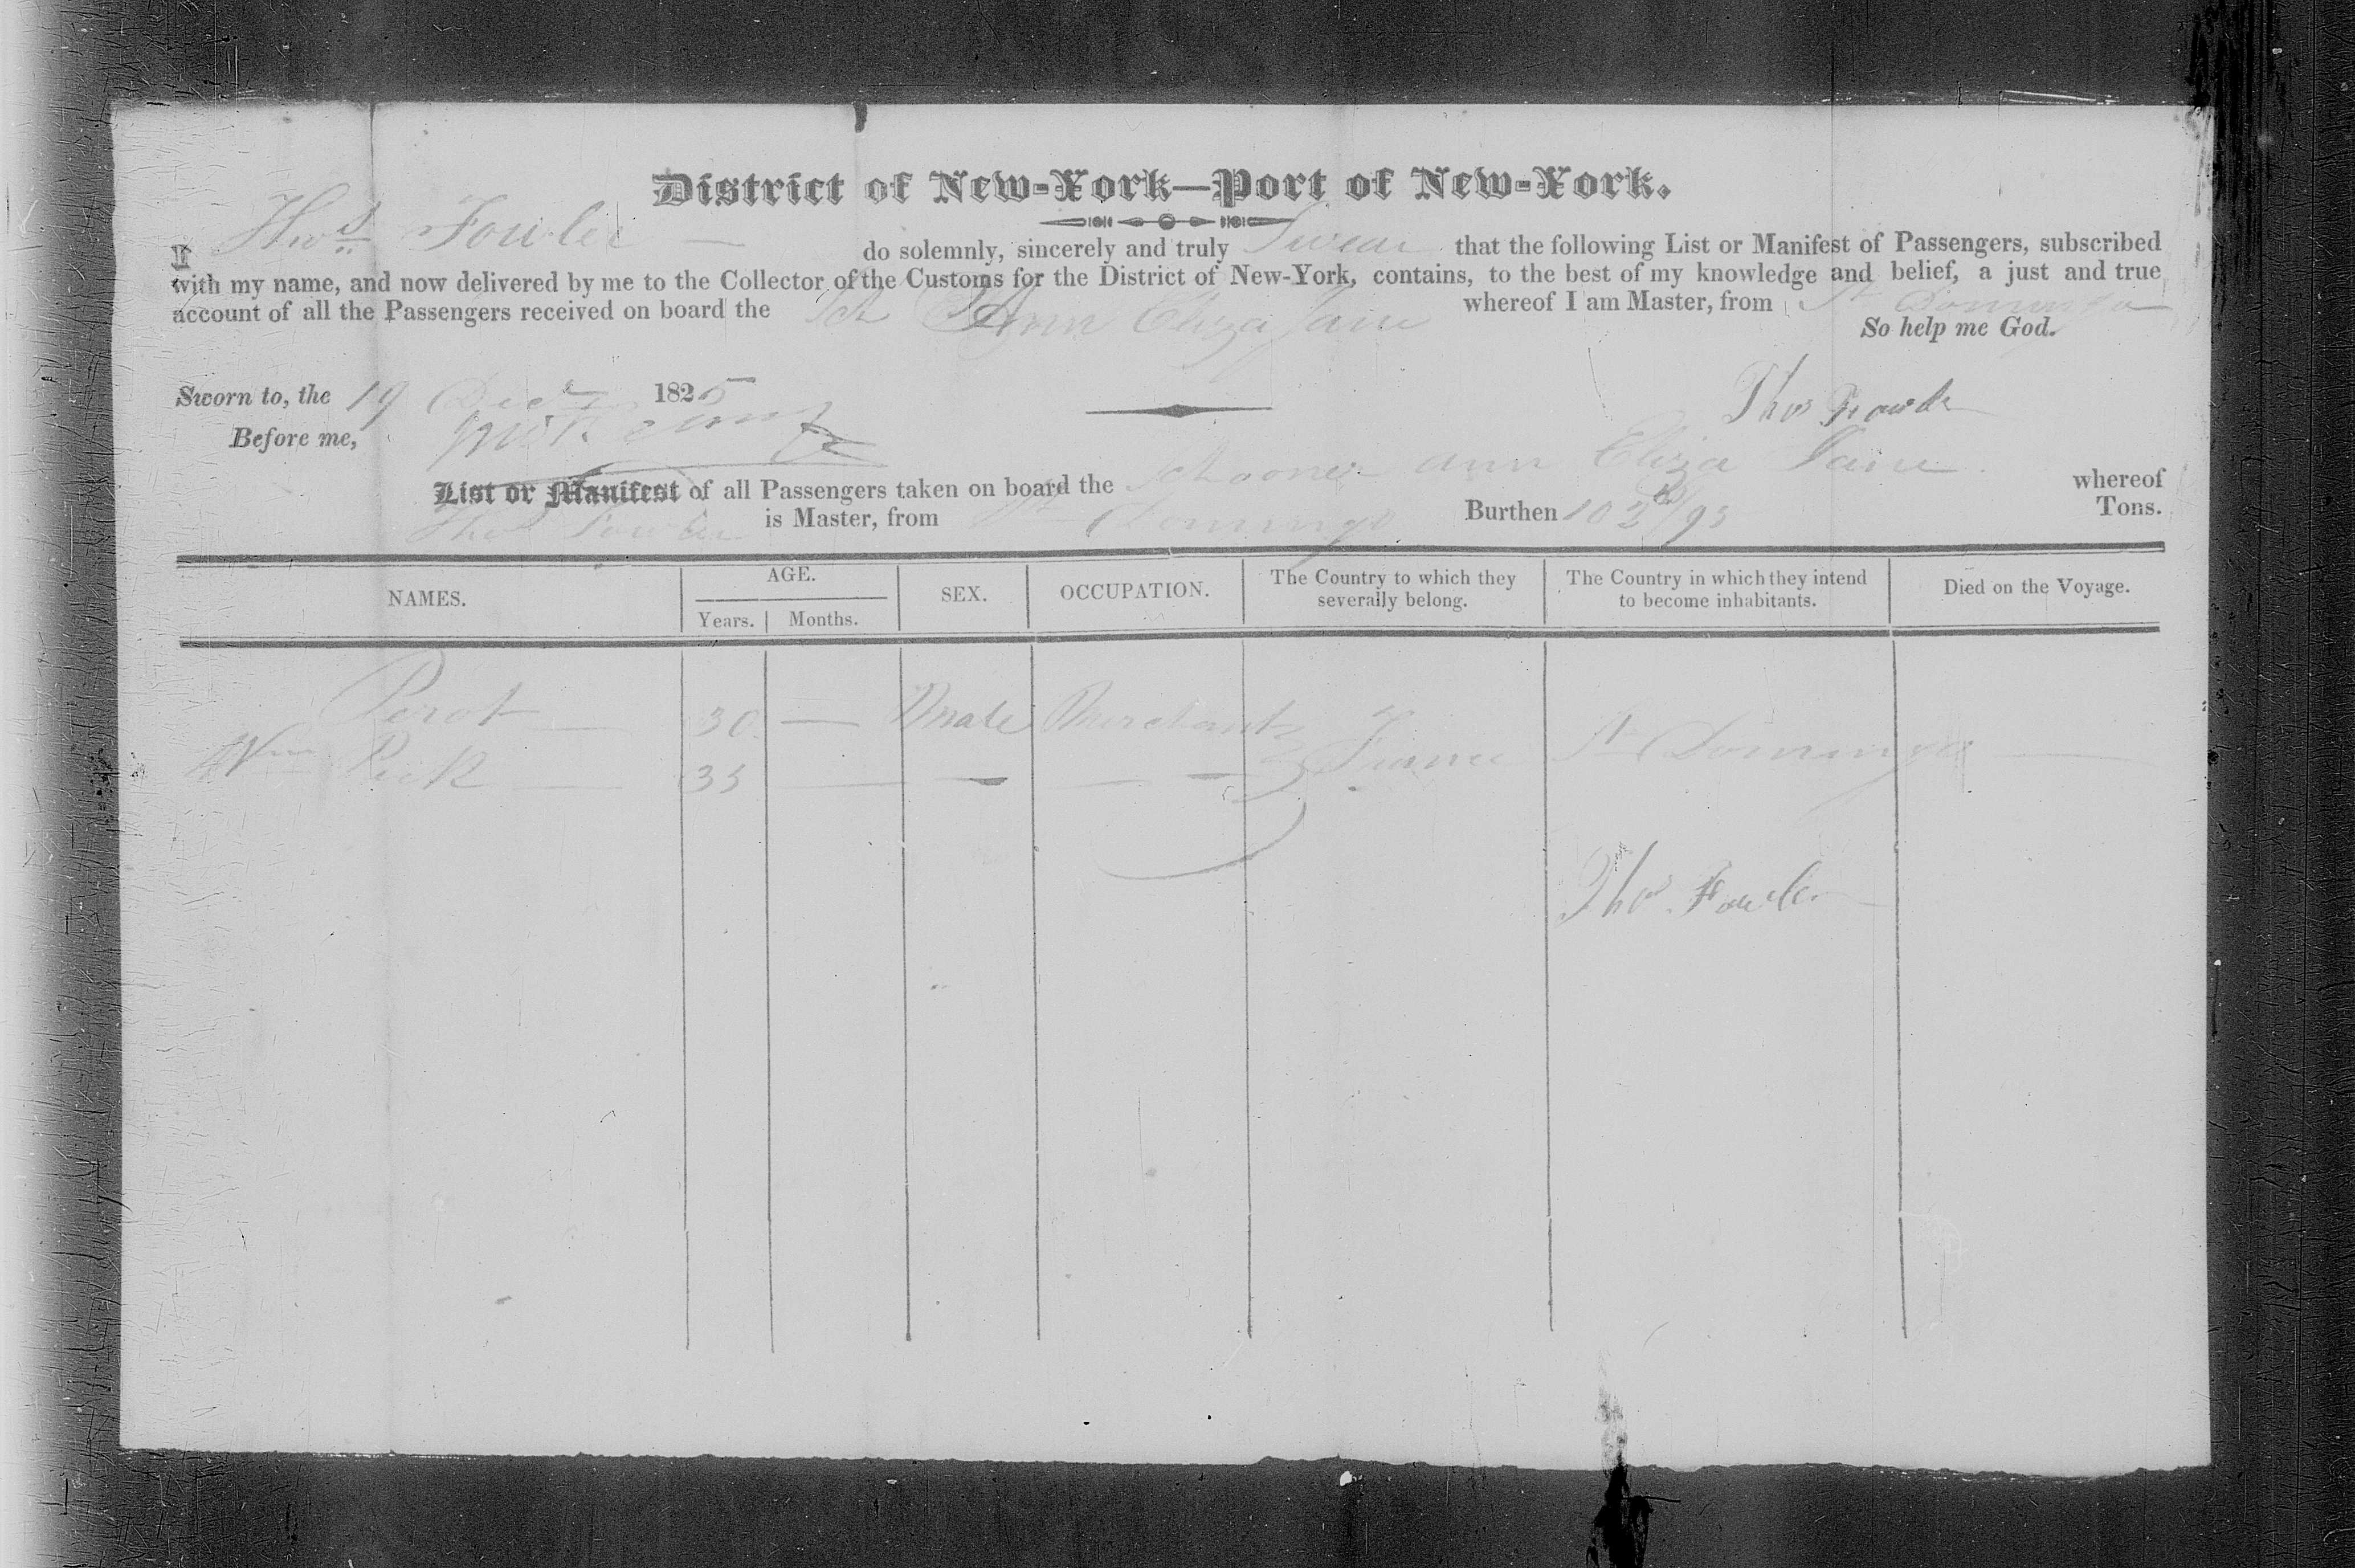 District of New-York—Port of New-York.
I Thos Fowler — do solemnly, sincerely and truly Swear that the following List or Manifest of Passengers, subscribed
with my name, and now delivered by me to the Collector of the Customs for the District of New-York, contains, to the best of my knowledge and belief, a just and true
account of all the Passengers received on board the Sch Ann Eliza Jane whereof I am Master, from St Domingo
So help me God.
Sworn to, the 19 Decr 1825
Thos Fowler
Before me,
List or Manifest of all Passengers taken on board the Schooner Ann Eliza Jane whereof
Thos Fowler is Master, from St Domingo Burthen 102 /95 Tons.
NAMES. AGE. Years. Months. SEX. OCCUPATION. The Country to which they severally belong. The Country in which they intend to become inhabitants. Died on the Voyage.
Perot — 30 — Male Merchant
France St Domingo —
Wm Peck — 35 — — — —
Thos Fowler